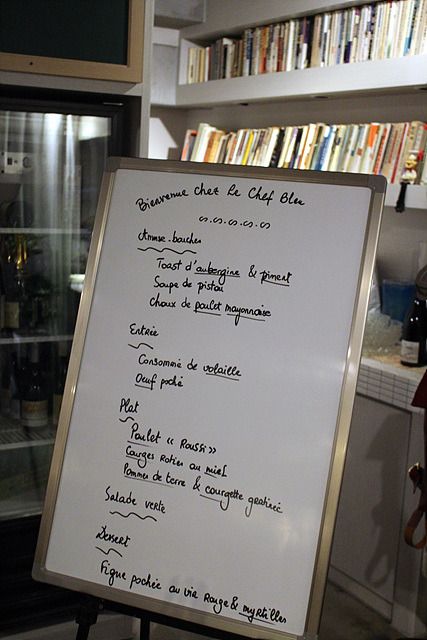 Bienvenue chez Le Chef Bleu
Amuse-bouches
Toast d'aubergine & piment
Soupe de pistou
Choux de poulet mayonnaise
Entrée
Consommé de volaille
Oeuf poché
Plat
Poulet « Roussi »
Courges Roties au miel
Pommes de terre & courgette gratinée
Salade verte
Dessert
Figue pochée au vin Rouge & myrtilles